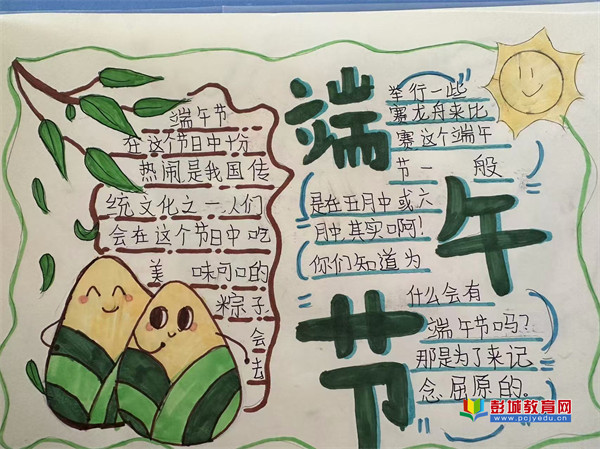 端午节
端午节
在这个节日中十份
热闹是我国传
统文化之一.人们
会在这个节日中吃
美味可口的
粽子
会去
举行一些
赛龙舟来比
赛这个端午
节一般
是在五月中或六
月中.其实啊!
你们知道为
什么会有
端午节吗?
那是为了来记
念屈原的。
彭城教育网
www.pcjyedu.cn